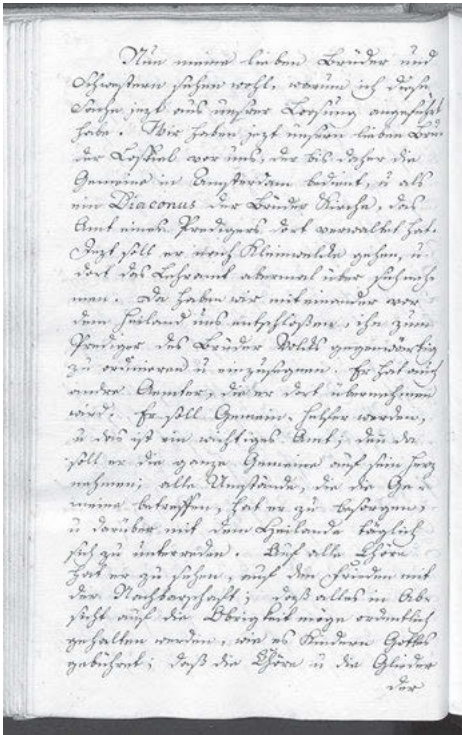 Nun meine lieben Brüder und
Schwestern sehen wohl, warum ich diese
Sache jezt aus unsrer Loosung angeführt
habe. Wir haben jezt unsern lieben Bru-
der Loskiel vor uns, der bis daher die
Gemeine in Amsterdam bedient, u als
ein Diaconus der Brüder Kirche, das
Amt eines Predigers dort verwaltet hat.
Jezt soll er nach Kleinwelke gehen, u.
dort das Lehramt abermal über sich neh-
men. Da haben wir miteinander vor
dem Heiland uns entschloßen, ihn zum
Prediger des Brüder Volks gegenwärtig
zu ordiniren u einzusegnen. Er hat auch
andre Aemter, die er dort übernehmen
wird. Er soll Gemein-Helfer werden,
u das ist ein wichtiges Amt; den da
soll er die ganze Gemeine auf sein Herz
nehmen; alle Umstände, die die Ge-
meine betreffen, hat er zu besorgen,
u darüber mit dem Heilande täglich
sich zu unterreden. Auf alle Chöre
hat er zu sehen, auf den Frieden mit
der Nachbarschaft; daß alles in Ab-
sicht auf die Obrigkeit möge ordentlich
gehalten werden, wie es Kindern Gottes
gebühret; daß die Chöre u die Glieder
der